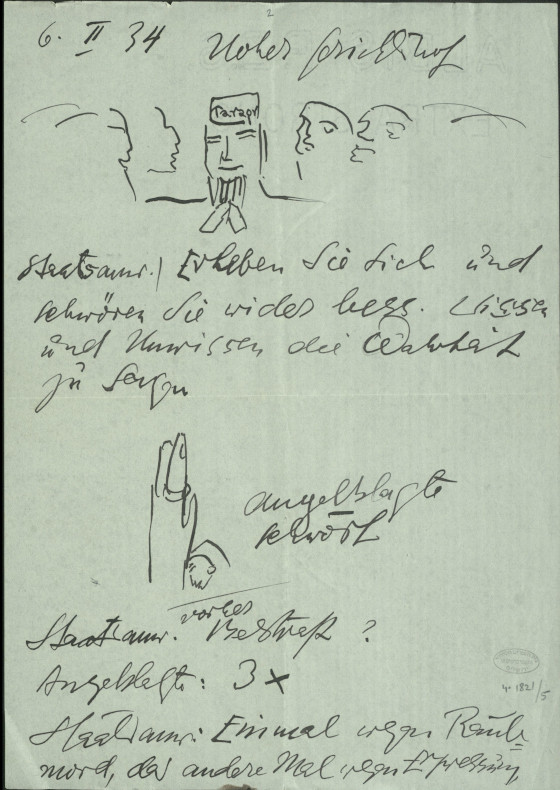 2
6. II 34 Hoher Gerichtshof
Paragr
Staatsanw.) Erheben Sie sich und
schwören Sie wider bess. Wissen
und Unwissen die Wahrheit
zu sagen
angeklagte
schwört
vorher
Staatsanw. Bestraft ?
Angeklagte: 3 x
Staatsanw: Einmal wegen Raub=
mord, das andere Mal wegen Erpressung
4. 1821/5